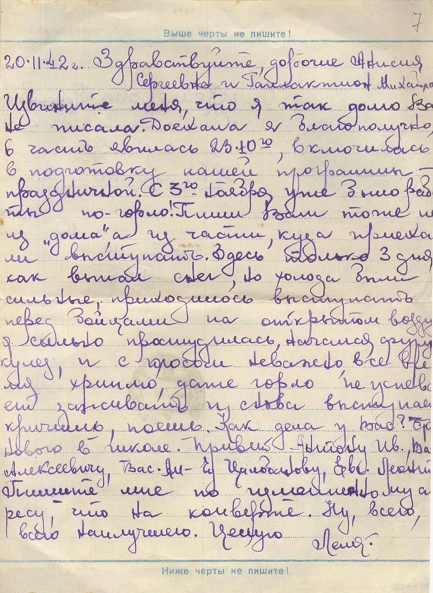 7
Выше черты не пишите!
20.11.42г. Здравствуйте, дорогие Анисия
Сергеевна и Галлактион Михайло
Извините меня, что я так долго Вам
не писала. Доехала я благополучно,
в часть явилась 23.10го, включилась
в подготовку нашей программы –
праздничной. С 3го ноября уже
по-горло! Пишу Вам тоже не
из "дома" а из части, куда приеха
ли выступать. Здесь только 3 дня
как выпал снег, но холода были
сильные, приходилось выступать
перед бойцами на открытом возду
я сильно простудилась, начался фурун
кулез, и с горлом неважно, все вре
мя хриплю, даже горло не успева
ет заживать и снова выступаем
кричишь, поешь. Как дела у Вас?
нового в школе. Привет Антону Ив.,
Алексеевичу, Вас.
Пишите мне по
ресу, что на конверте. Ну, всего,
всего наилучшего. Целую
Леля.
Ниже черты не пишите!